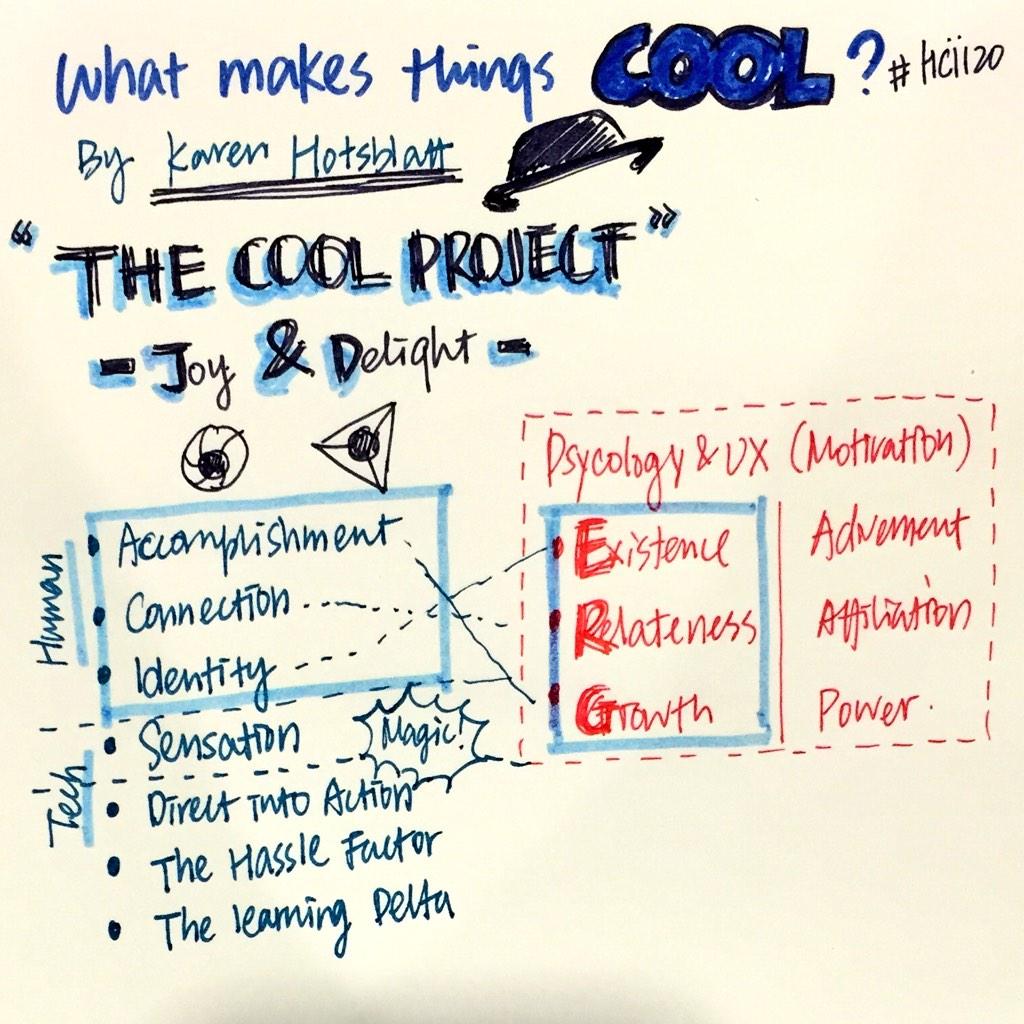 What makes things COOL? #HCII20
By Karen Hotsblatt
"THE COOL PROJECT"
- Joy & Delight -
Psycology & UX (Motivation)
Human
Accomplishment
Connection
Identity
Existence
Relateness
Growth
Advement
Affiliation
Power.
Tech
Sensation
Magic!
Direct into Action
The Hassle Factor
The learning Delta